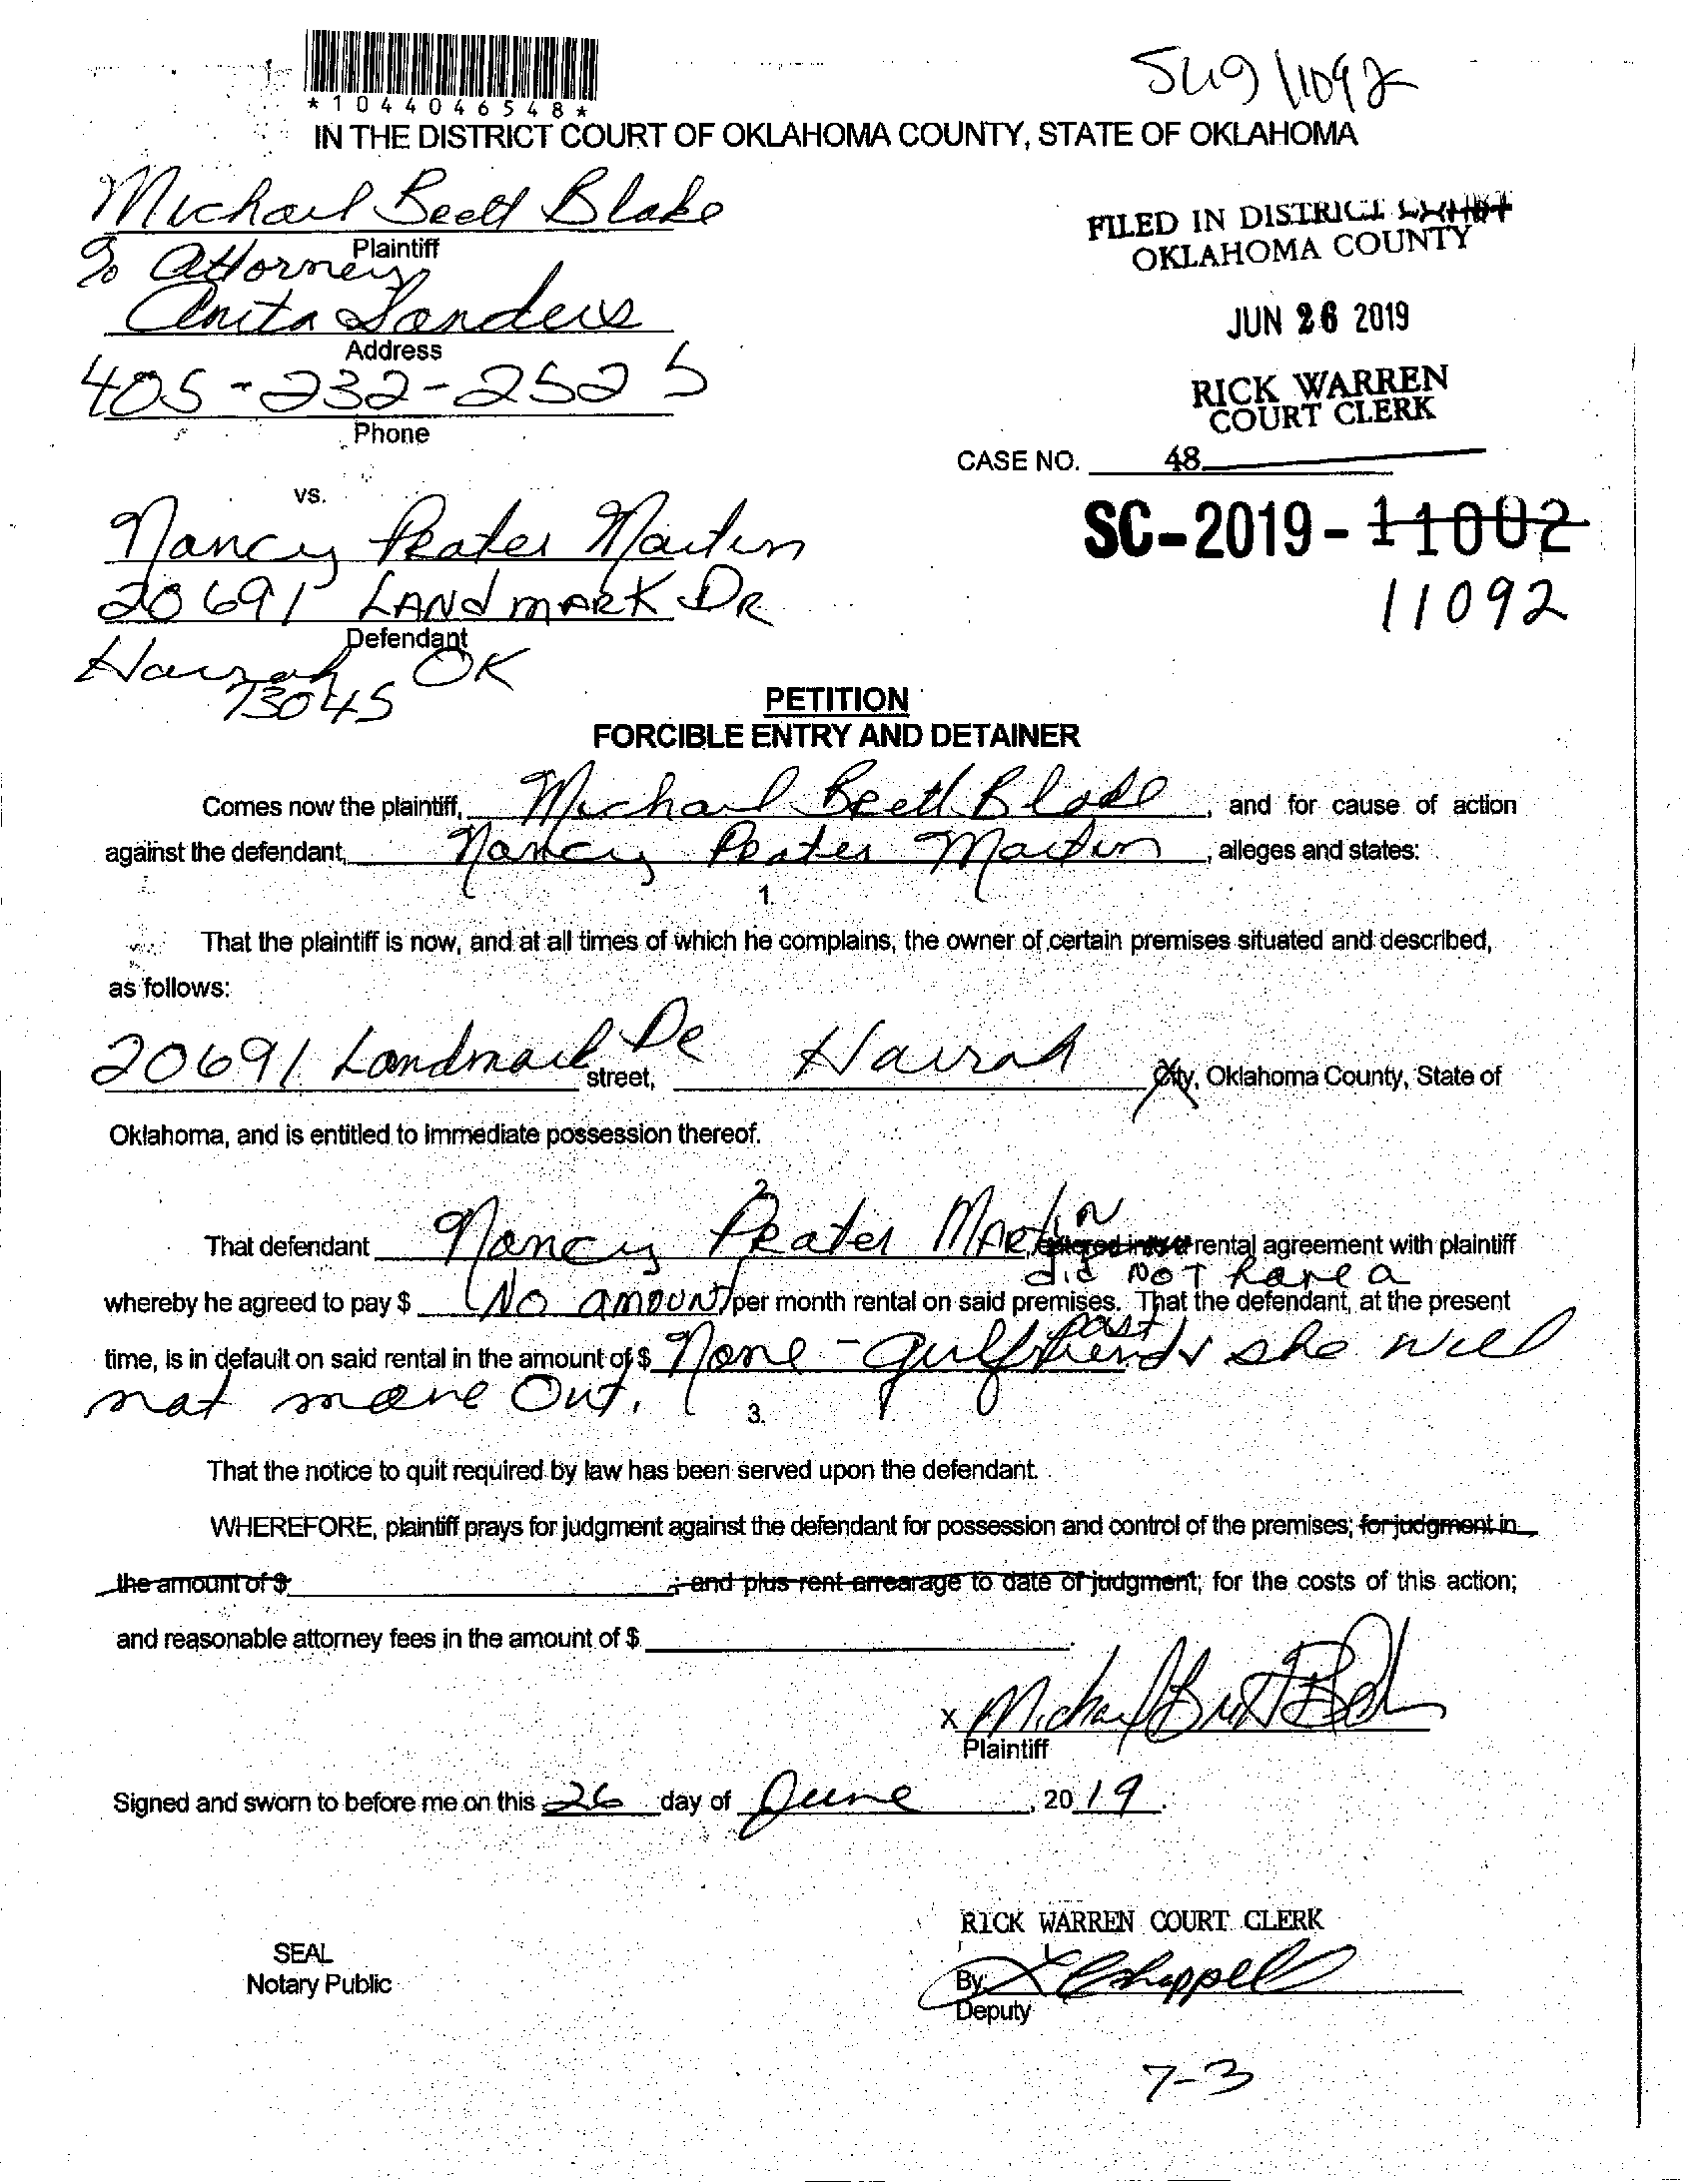 SC19 11092
*1044046548*
IN THE DISTRICT COURT OF OKLAHOMA COUNTY, STATE OF OKLAHOMA
Michael Brett Blake
Plaintiff
% Attorney
Anita Sanders
Address
405-232-2525
Phone
FILED IN DISTRICT COURT
OKLAHOMA COUNTY
JUN 26 2019
RICK WARREN
COURT CLERK
CASE NO. 48
SC-2019-11002
11092
vs.
Nancy Prater Martin
20691 LANDMARK DR
Defendant
Harrah OK
73045
PETITION
FORCIBLE ENTRY AND DETAINER
Comes now the plaintiff, Michael Brett Blake, and for cause of action
against the defendant, Nancy Prater Martin, alleges and states:
1.
That the plaintiff is now, and at all times of which he complains, the owner of certain premises situated and described,
as follows:
20691 Landmark Dr street, Harrah City, Oklahoma County, State of
Oklahoma, and is entitled to immediate possession thereof.
2.
That defendant Nancy Prater Martin, entered into a rental agreement with plaintiff
did NOT have a
whereby he agreed to pay $ No amount per month rental on said premises. That the defendant, at the present
past
time, is in default on said rental in the amount of $ None - girlfriend & she will
not move out.
3.
That the notice to quit required by law has been served upon the defendant.
WHEREFORE, plaintiff prays for judgment against the defendant for possession and control of the premises; for judgment in
the amount of $ ; and plus rent arrearage to date of judgment; for the costs of this action;
and reasonable attorney fees in the amount of $
x Michael Brett Blake
Plaintiff
Signed and sworn to before me on this 26 day of June, 2019.
RICK WARREN COURT CLERK
SEAL
Notary Public
By: Chappell
Deputy
7-3